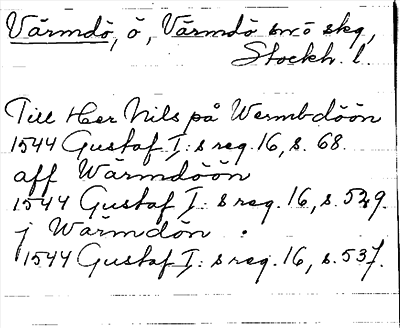 Värmdö, ö, Värmdö sn o skg,
Stockh. l.
Till Her Nils på Wermbdöön
1544 Gustaf I:s reg. 16, s. 68.
aff Wärmdöön
1544 Gustaf I:s reg. 16, s. 529.
j Wärmdön
1544 Gustaf I:s reg. 16, s. 537.